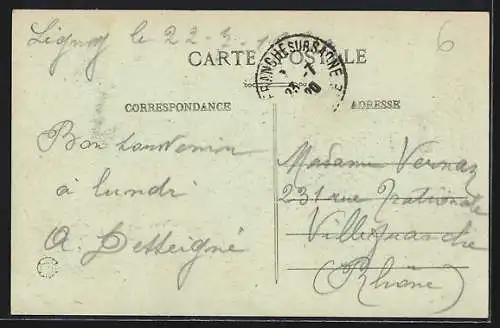 Ligny le 22-3-
CARTE POSTALE
FRANCHE SUR SAONE
23 20
6
CORRESPONDANCE
ADRESSE
Bon souvenir
à lundi
A. Detteigné
Madame Vernay
231 rue Nationale
Villefranche
(Rhône)